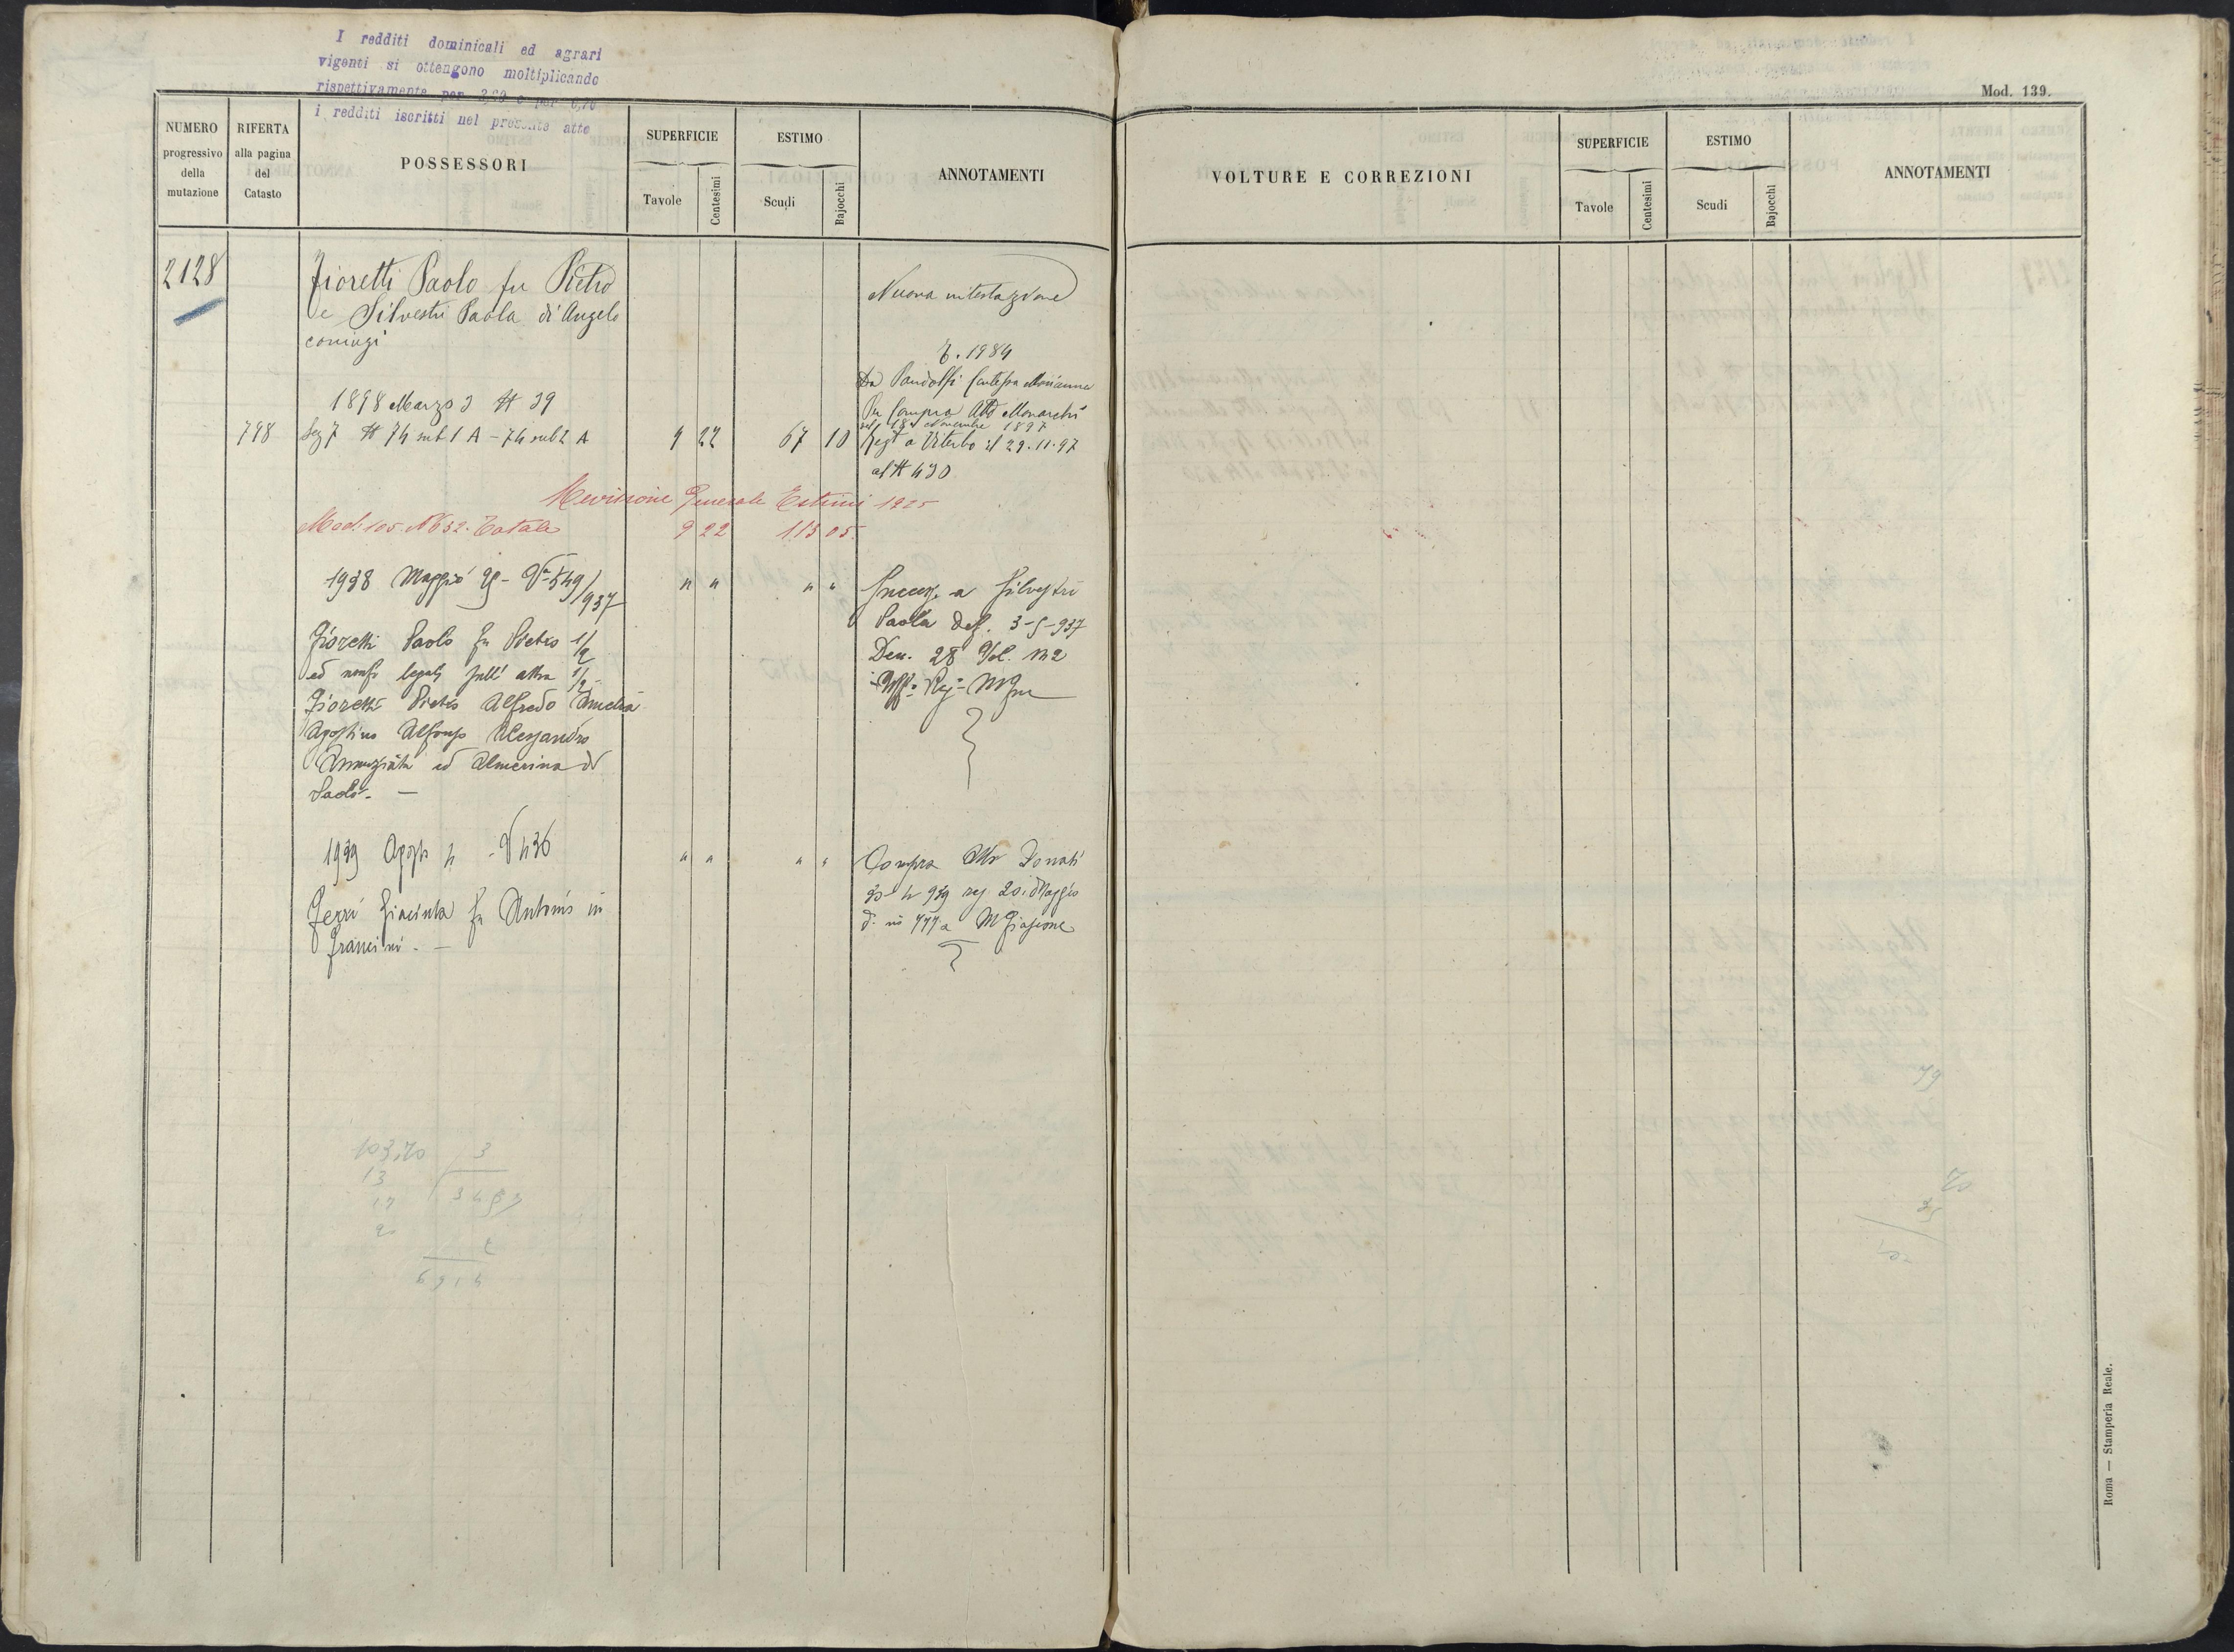 I redditi dominicali ed agrari
vigenti si ottengono moltiplicando
rispettivamente per
i redditi iscritti nel presente atto
Mod. 139.
NUMERO progressivo della mutazione
RIFERTA alla pagina del Catasto
POSSESSORI
SUPERFICIE
Tavole
Centesimi
ESTIMO
Scudi
Bajocchi
ANNOTAMENTI
VOLTURE E CORREZIONI
SUPERFICIE
Tavole
Centesimi
ESTIMO
Scudi
Bajocchi
ANNOTAMENTI
2128
Fioretti Paolo fu Pietro
e Silvestri Paola di Angelo
coniugi
Nuova intestazione
1984
Da Pandolfi Contessa Marianna
1898 Marzo 3 N 39
Per Compra Atto Monarchi
18 Novembre 1897
798 Sez 7 N 74 sub 1 A - 74 sub 2 A 9 22 67 10 Regt a Viterbo il 29.11.97
al N 430
Revisione Generale Estimi 1925
Mod. 105. N 632. Totale 9 22 113 05
1938 Maggio 549/937 " " " " Success. a Silvestri
Paola def. 3-5-937
Fioretti Paolo fu Pietro 1/2
Den. 28 Vol. 132
ed legali sull' altra 1/2
Uff. Reg.
Fioretti Pietro Alfredo Amelia
Agostino Alfonso Alessandro
Annunziata ed Almerina di
Paolo. —
1939 Agosto 4 - N 436 " " " " Compra Atto Donati
939 reg. 20 Maggio
Ferri Giacinta fu Antonio in
d. no 777 a Mfiascone
Francini. —
103,70 3
13
17
20
2
6914
79
70
35
Roma — Stamperia Reale.